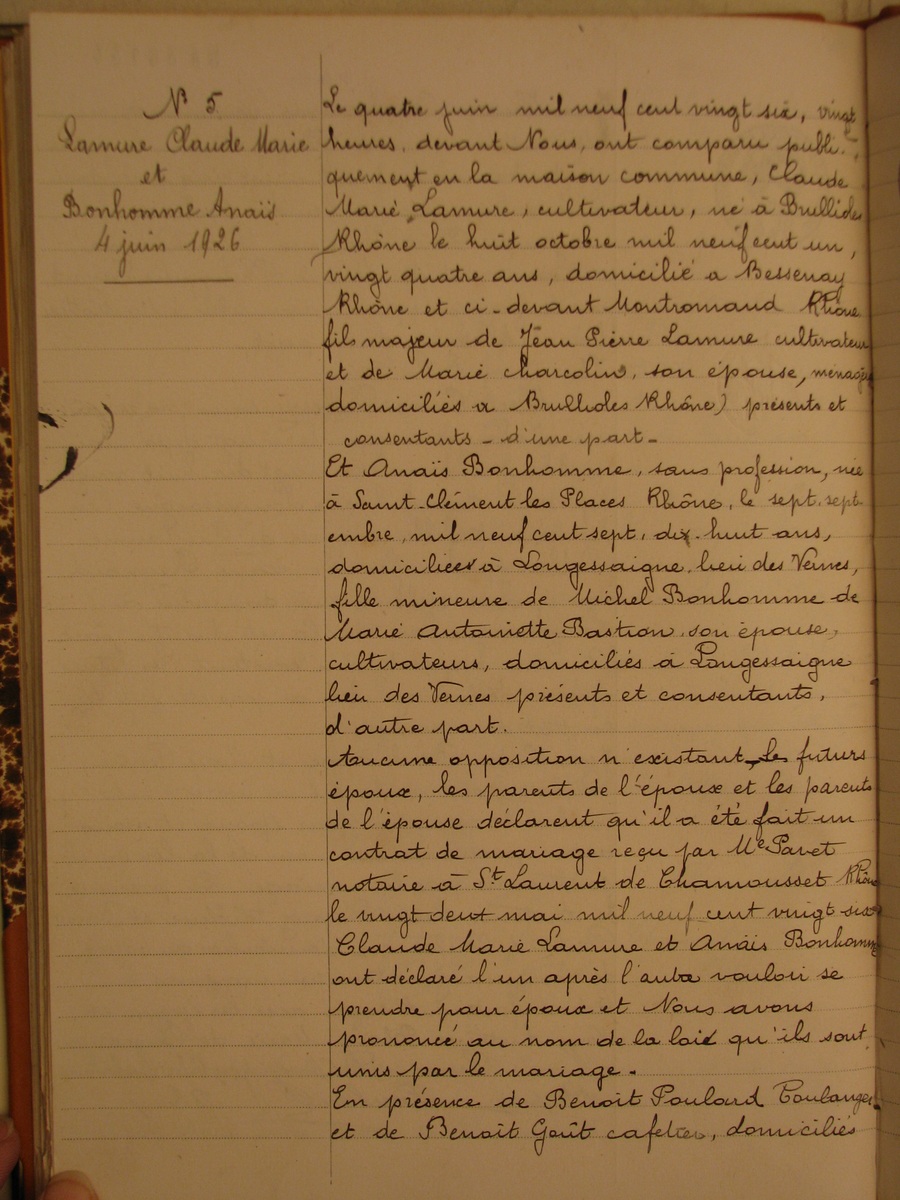 N° 5
Lamure Claude Marie
et
Bonhomme Anaïs
4 juin 1926
Le quatre juin mil neuf cent vingt six, vingt
heures, devant Nous, ont comparu publi-
quement en la maison commune, Claude
Marie Lamure, cultivateur, né à Brullioles
Rhône le huit octobre mil neuf cent un,
vingt quatre ans, domicilié a Bessenay
Rhône et ci-devant Montromand Rhône
fils majeur de Jean Pierre Lamure cultivateur
et de Marie Charcolin, son épouse, ménagère
domiciliés a Brullioles Rhône) présents et
consentants - d'une part -
Et Anaïs Bonhomme, sans profession, née
à Saint-Clément les Places Rhône, le sept sept-
embre, mil neuf cent sept, dix-huit ans,
domiciliée à Longessaigne lieu des Vernes,
fille mineure de Michel Bonhomme de
Marie Antoinette Bastion son épouse,
cultivateurs, domiciliés à Longessaigne
lieu des Vernes présents et consentants,
d'autre part.
Aucune opposition n'existant, les futurs
époux, les parents de l'époux et les parents
de l'épouse déclarent qu'il a été fait un
contrat de mariage reçu par Me
notaire à St Laurent de Chamousset Rhône
le vingt deux mai mil neuf cent vingt six
Claude Marie Lamure et Anaïs Bonhomme
ont déclaré l'un après l'autre vouloir se
prendre pour époux et Nous avons
prononcé au nom de la loi qu'ils sont
unis par le mariage.
En présence de Benoit Boulanger
et de Benoît cafetier, domiciliés